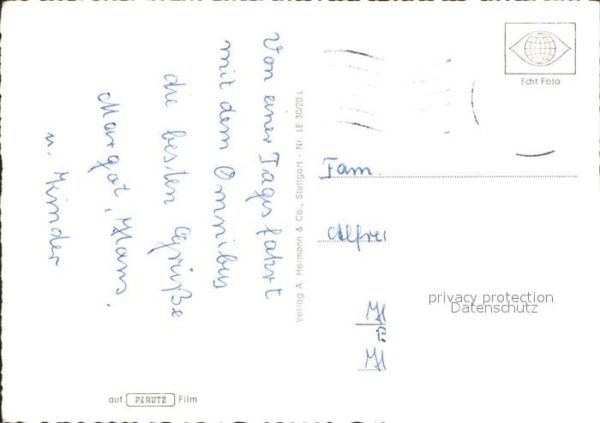 Von einer Tagesfahrt
mit dem Omnibus
die besten Grüße
Margot, Hans,
u. Kinder
Verlag A. Hermann & Co., Stuttgart - Nr. LE 30/20 L
Echt Foto
Fam.
Alfre
privacy protection
Datenschutz
auf PERUTZ Film